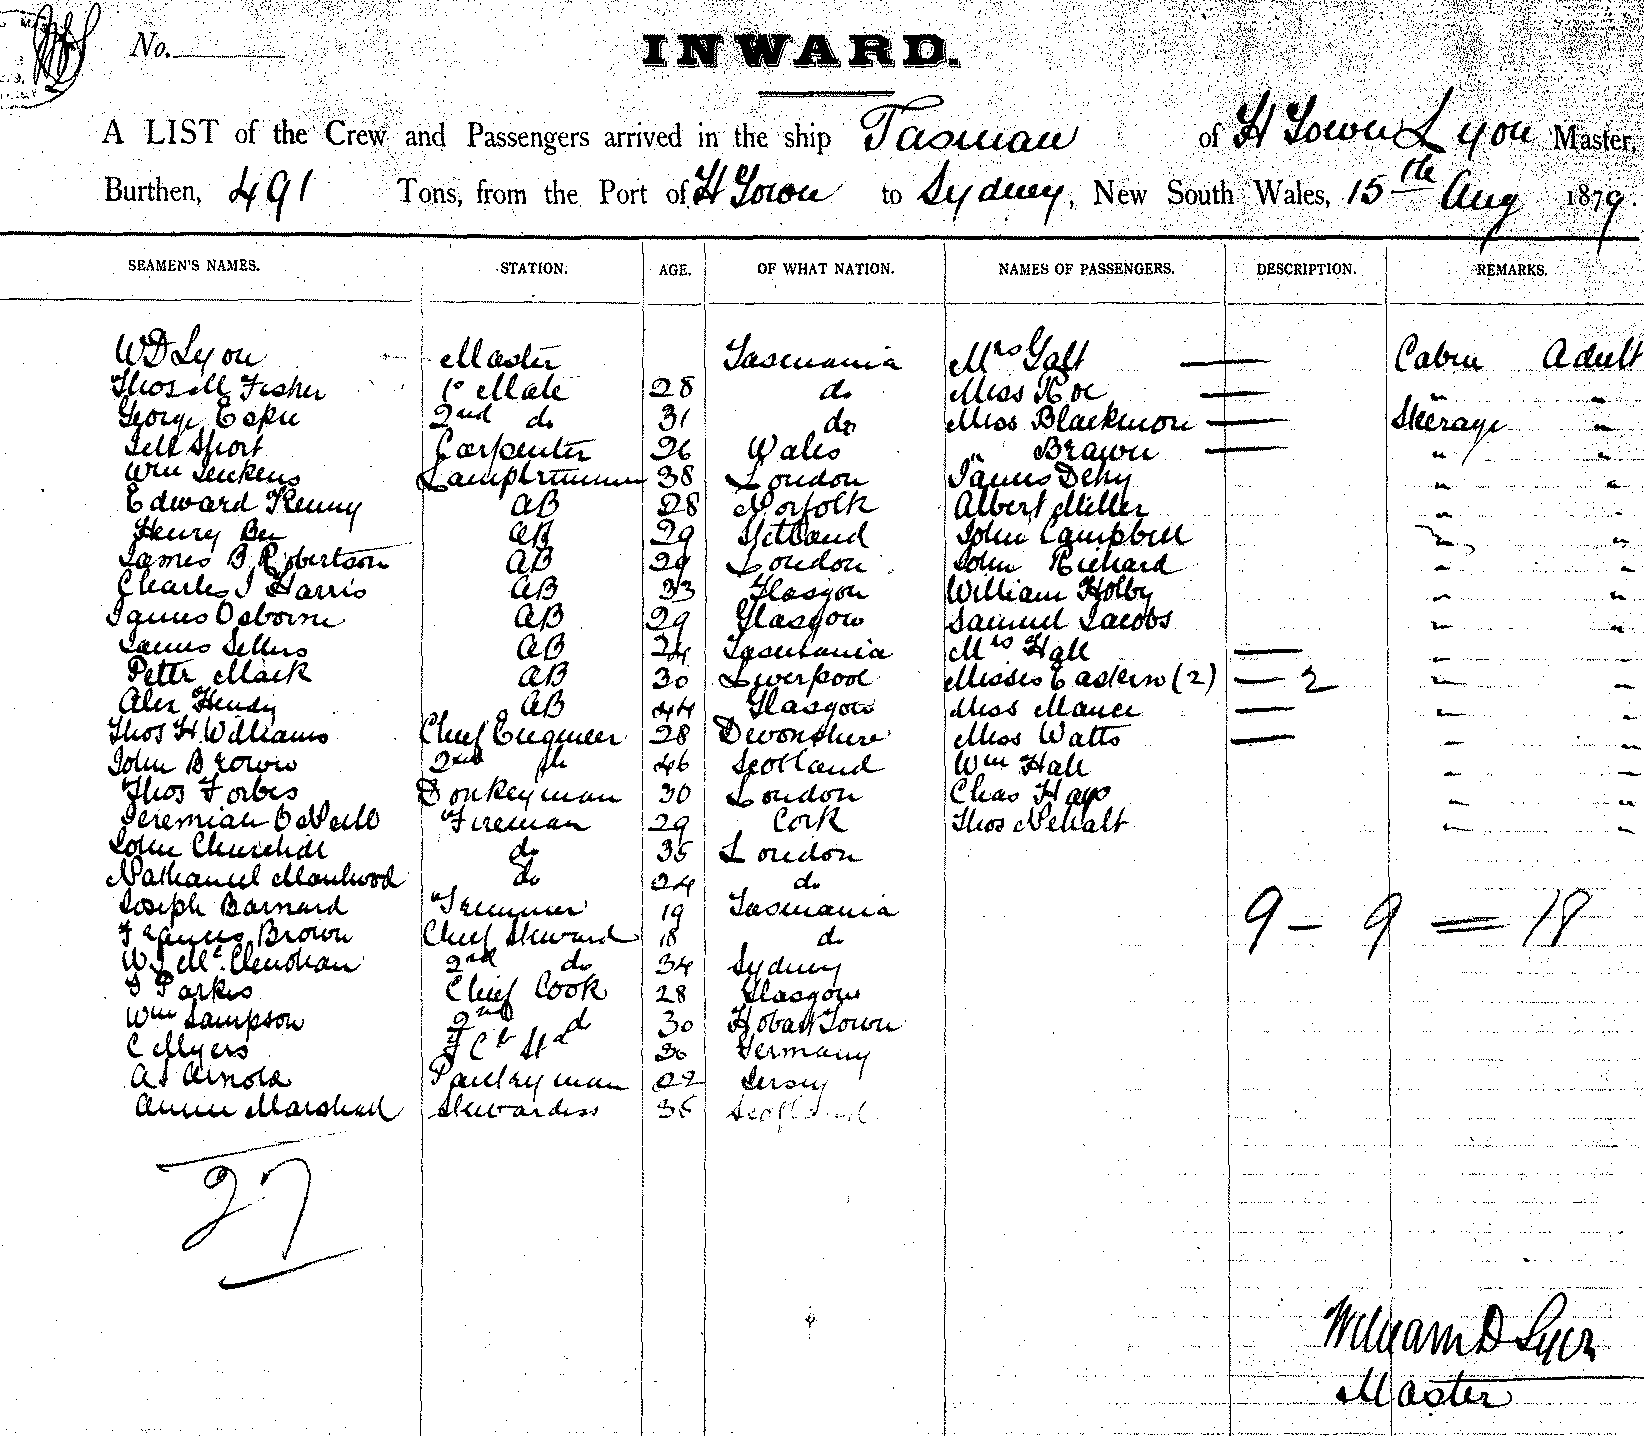 No.
INWARD.
A LIST of the Crew and Passengers arrived in the ship Tasman of H Town Lyon Master,
Burthen, 491 Tons, from the Port of H Town to Sydney, New South Wales, 15th Aug 1879.
SEAMEN'S NAMES. STATION. AGE. OF WHAT NATION. NAMES OF PASSENGERS. DESCRIPTION. REMARKS.
W D Lyon Master Tasmania Mrs Galt — Cabin Adult
Thos M Fisher 1st Mate 28 do Miss Roe — " "
George 2nd do 31 do Miss Blackmore — Steerage "
Short Carpenter 26 Wales " Brown — " "
Wm Lamptrimmer 38 London James " "
Edward Kenny AB 28 Norfolk Albert Miller " "
Henry AB 29 John Campbell " "
James B Robertson AB 29 London John Richard " "
Charles J Harris AB 33 Glasgow William Holby " "
James Osborne AB 29 Glasgow Samuel Jacobs " "
James Sellers AB 24 Tasmania Mrs Hall — " "
Peter Mack AB 30 Liverpool Misses (2) — 2 " "
Alex Hendy AB 44 Glasgow Miss — " "
Thos H Williams Chief Engineer 28 Devonshire Miss Watts — " "
John Brown 2nd do 46 Scotland Wm Hall " "
Thos Forbes Donkeyman 30 London Chas Hays " "
Jeremiah O'Neill Fireman 29 Cork Thos " "
John do 35 London
Nathaniel do 24 do
Joseph Barnard Trimmer 19 Tasmania
Francis Brown Chief Steward 18 do
W J McClenahan 2nd do 34 Sydney
Parkes Chief Cook 28 Glasgow
Wm Sampson 2nd do 30 Hobart Town
C Myers 30 Germany
A J Arnold Pantryman 22 Jersey
Annie Marshall Stewardess 35 Scotland
9 – 9 = 18
27
William D Lyon
Master